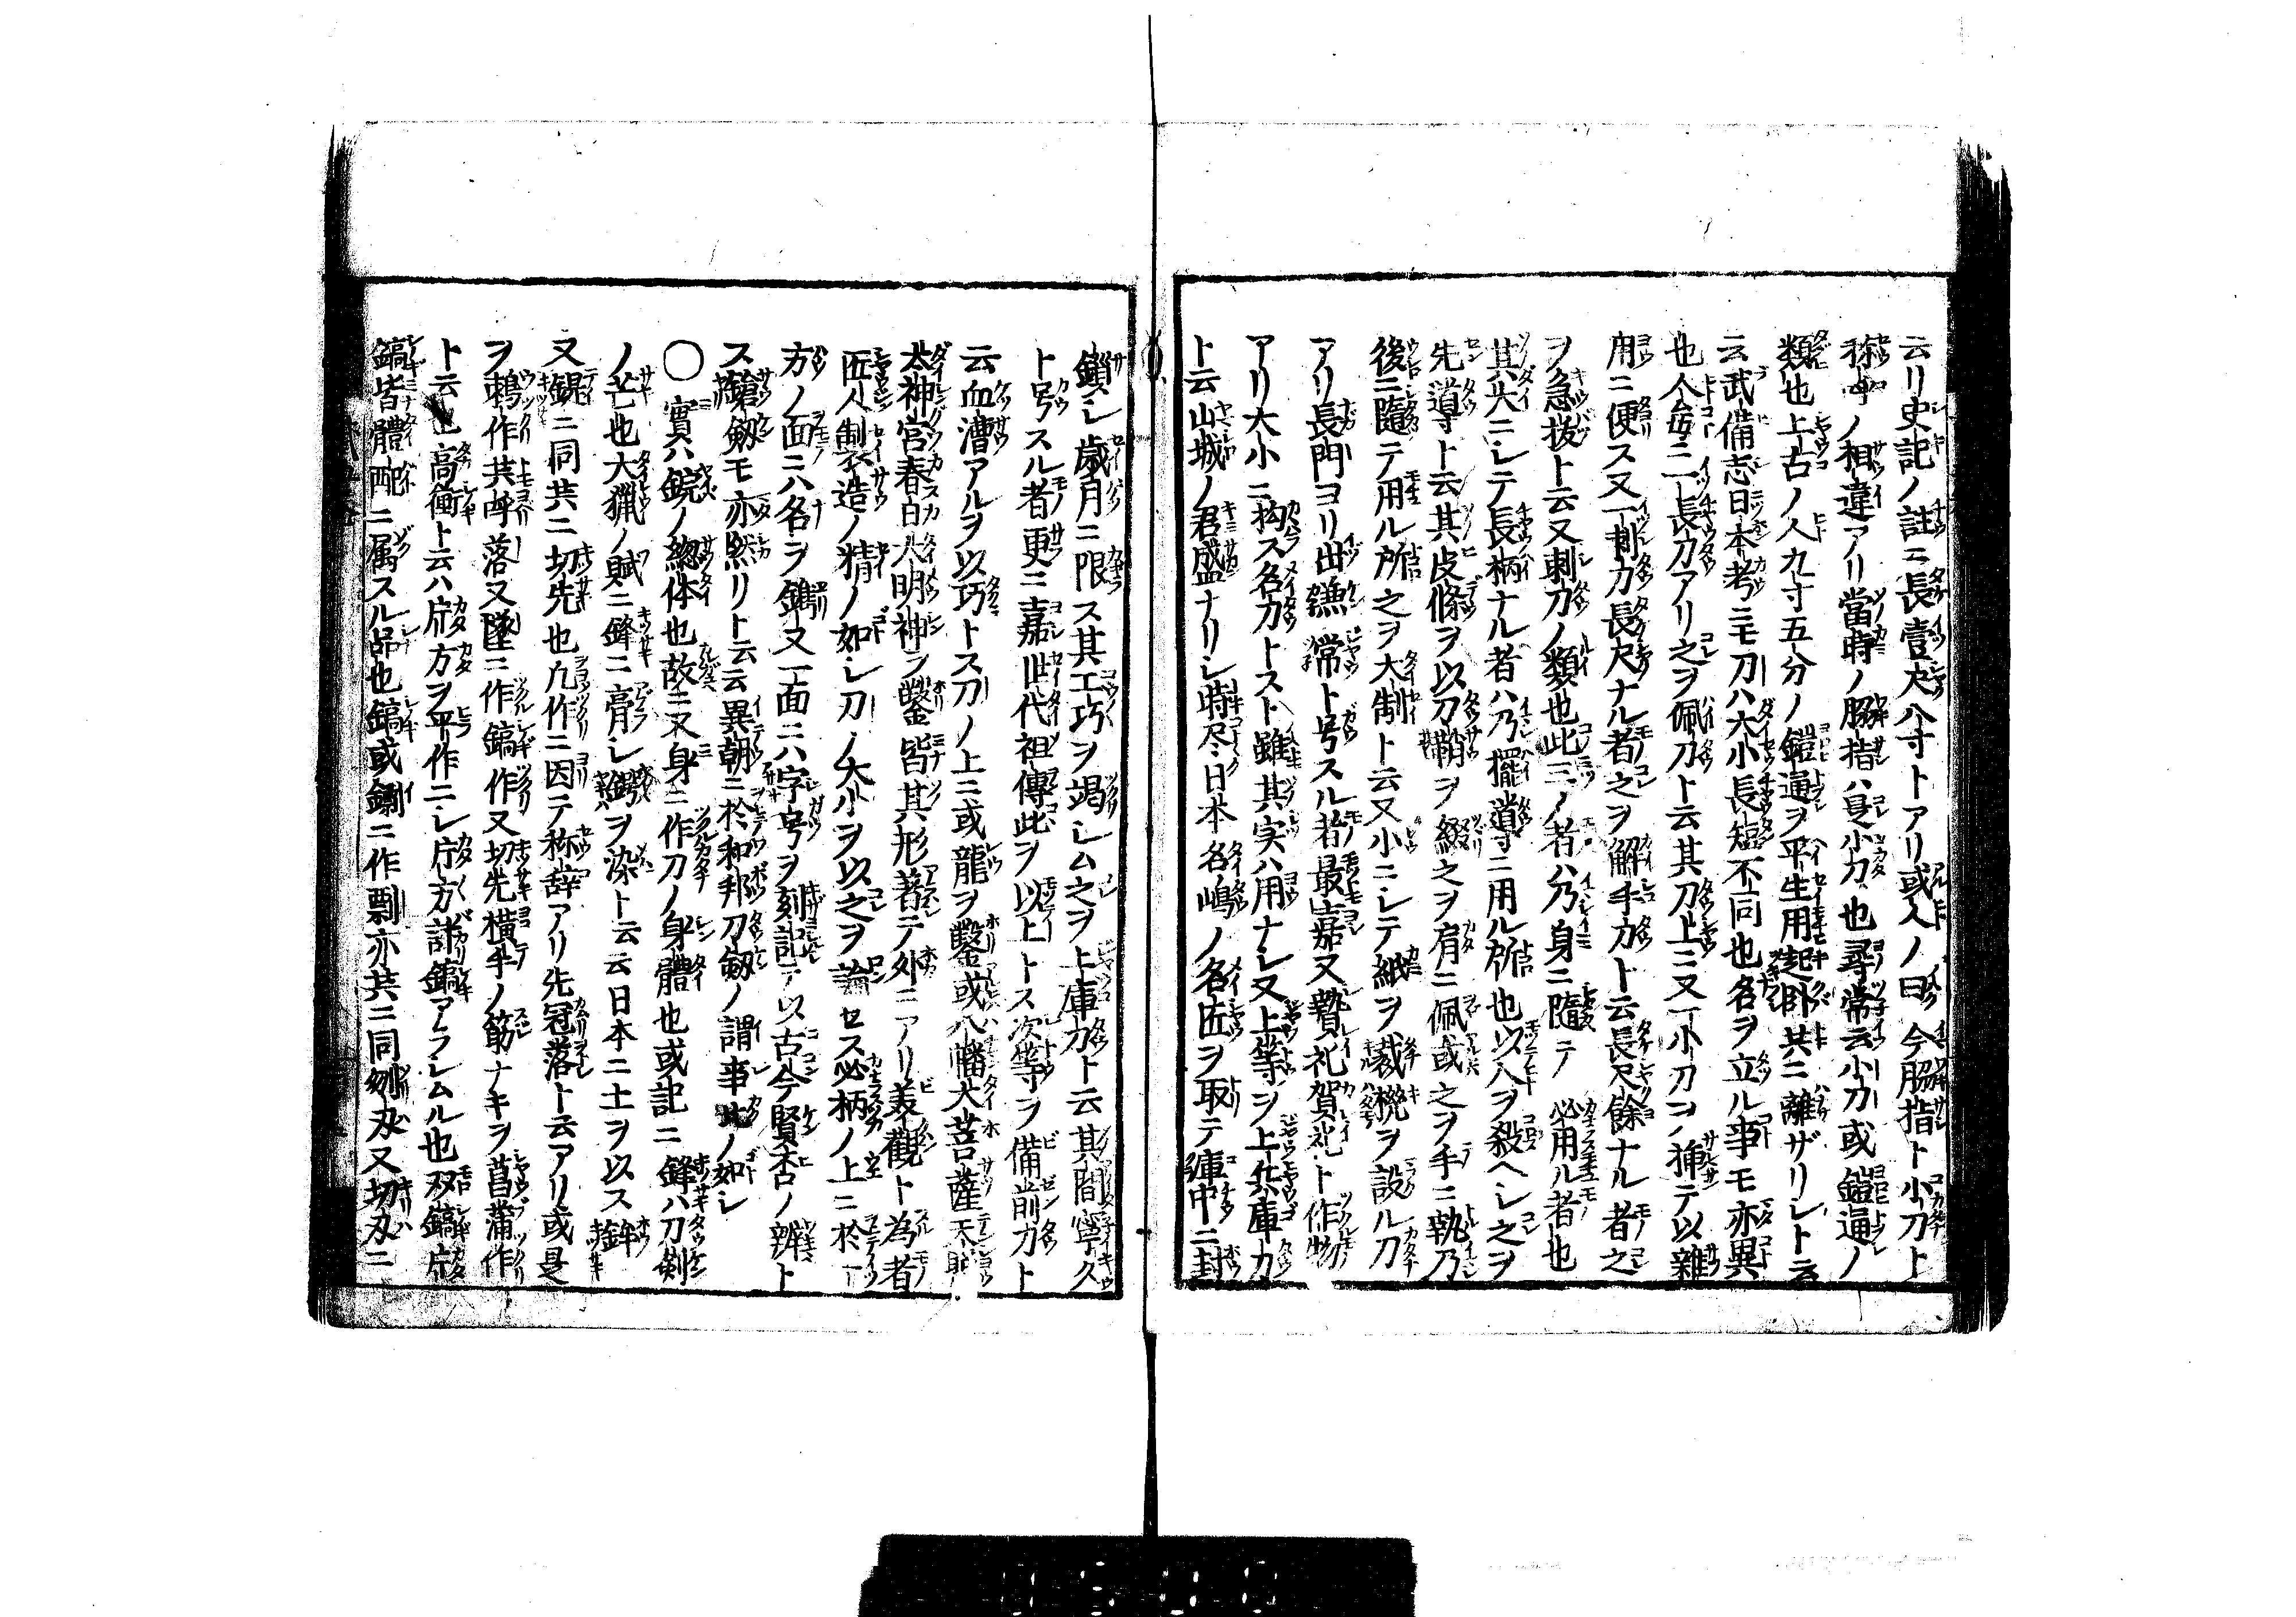 云リ史記ノ註ニ長壹尺八寸トアリ或人ノ曰今脇指ト小刀ト
称中ノ相違アリ當時ノ脇指ハ是小刀也尋常云小刀或鎧通ノ
類也上古ノ人九寸五分ノ鎧通ヲ平生用起臥共ニ離ザリシト云
云武備志日本考ニモ刀ハ大小長短不同也名ヲ立ル事モ亦異
也人毎ニ一長刀アリ之ヲ佩刀ト云其刀上ニ又一小刀ヲ挿テ以雜
用ニ便ス又一刺刀長尺ナル者之ヲ解手刀ト云長尺餘ナル者之
ヲ急拔ト云又刺刀ノ類也此三ノ者ハ乃身ニ隨テ必用ル者也
其大ニシテ長柄ナル者ハ乃擺導ニ用ル所也以人ヲ殺ヘシ之ヲ
先導ト云其皮條ヲ以刀鞘ヲ綴之ヲ肩ニ佩或之ヲ手ニ執乃
後ニ隨テ用ル所之ヲ大制ト云又小ニシテ紙ヲ裁機ヲ設ル刀
アリ長門ヨリ出 常ト号スル者最嘉又贄礼賀礼ト作物
アリ大小ニ拘ス名刀トスト雖其実ハ用ナシ又上等ヲ上兵庫刀
ト云山城ノ君盛ナリシ時尽日本各嶋ノ名匠ヲ取テ庫中ニ封
鎖シ歳月ニ限ス其工巧ヲ竭シム之ヲ上庫刀ト云其間寧久
ト号スル者更ニ嘉世代祖傳此ヲ以上トス次等ヲ備前刀ト
云血漕アルヲ以巧トス刀ノ上ニ或龍ヲ鑿或八幡大菩薩天照
太神宮春日大明神ヲ鑿皆其形著テ外ニアリ美觀ト為者
匠人制造ノ精ノ如シ刀ノ大小ヲ以之ヲ論セス必柄ノ上ニ於一
方ノ面ニハ名ヲ鐫又一面ニハ字号ヲ刻記テ以古今賢否ノ辨ト
ス鎗劔モ亦然リト云云異朝ニ於和邦刀劔ノ謂事此ノ如シ
〇實ハ鋺ノ総体也故ニ又身ニ作刀ノ身體也或記ニ鋒ハ刀剣
ノ芒也大猟ノ賦ニ鋒ニ膏シ鍔ヲ染ト云云日本ニ土ヲ以ス鋒
又鍉ニ同共ニ切先也九作ニ因テ称辞アリ先冠落ト云アリ或是
ヲ鵜作共呼落又墜ニ作鎬作又切先横手ノ筋ナキヲ菖蒲作
ト云也高衝ト云ハ片方ヲ平作ニシ片方計鎬アラシムル也双鎬片
鎬皆體配ニ属スル品也鎬或鐗ニ作剽亦共ニ同刎刄又切刄ニ